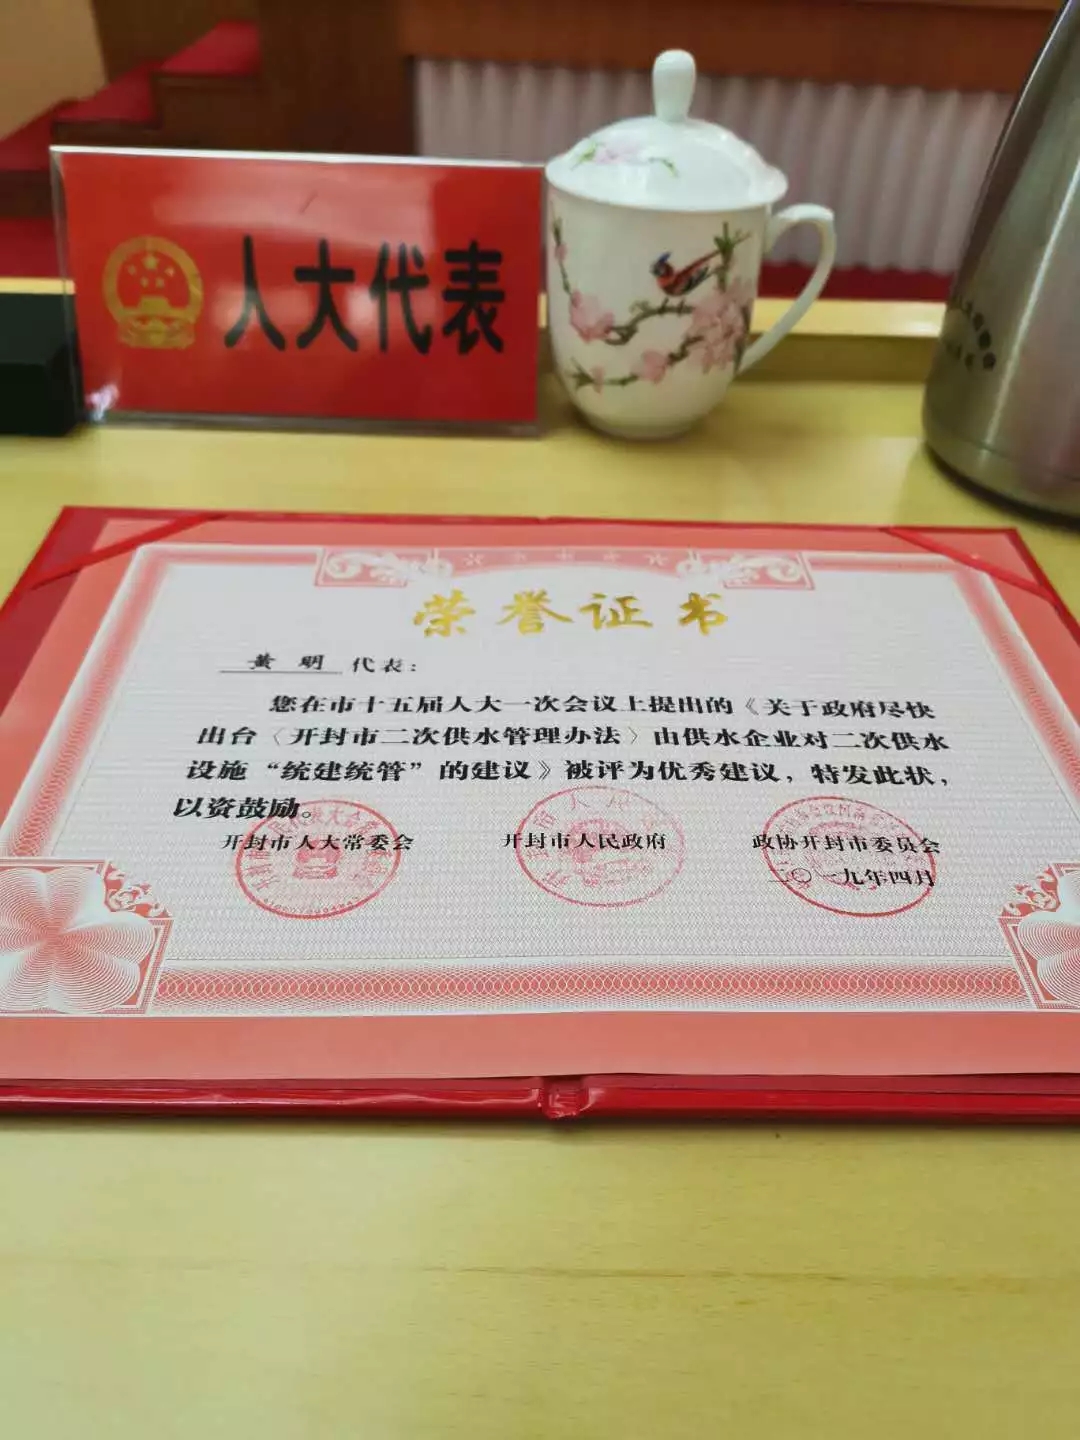 人大代表
荣誉证书
黄明 代表：
您在市十五届人大一次会议上提出的《关于政府尽快
出台〈开封市二次供水管理办法〉由供水企业对二次供水
设施“统建统管”的建议》被评为优秀建议，特发此状，
以资鼓励。
开封市人大常委会 开封市人民政府 政协开封市委员会
二〇一九年四月